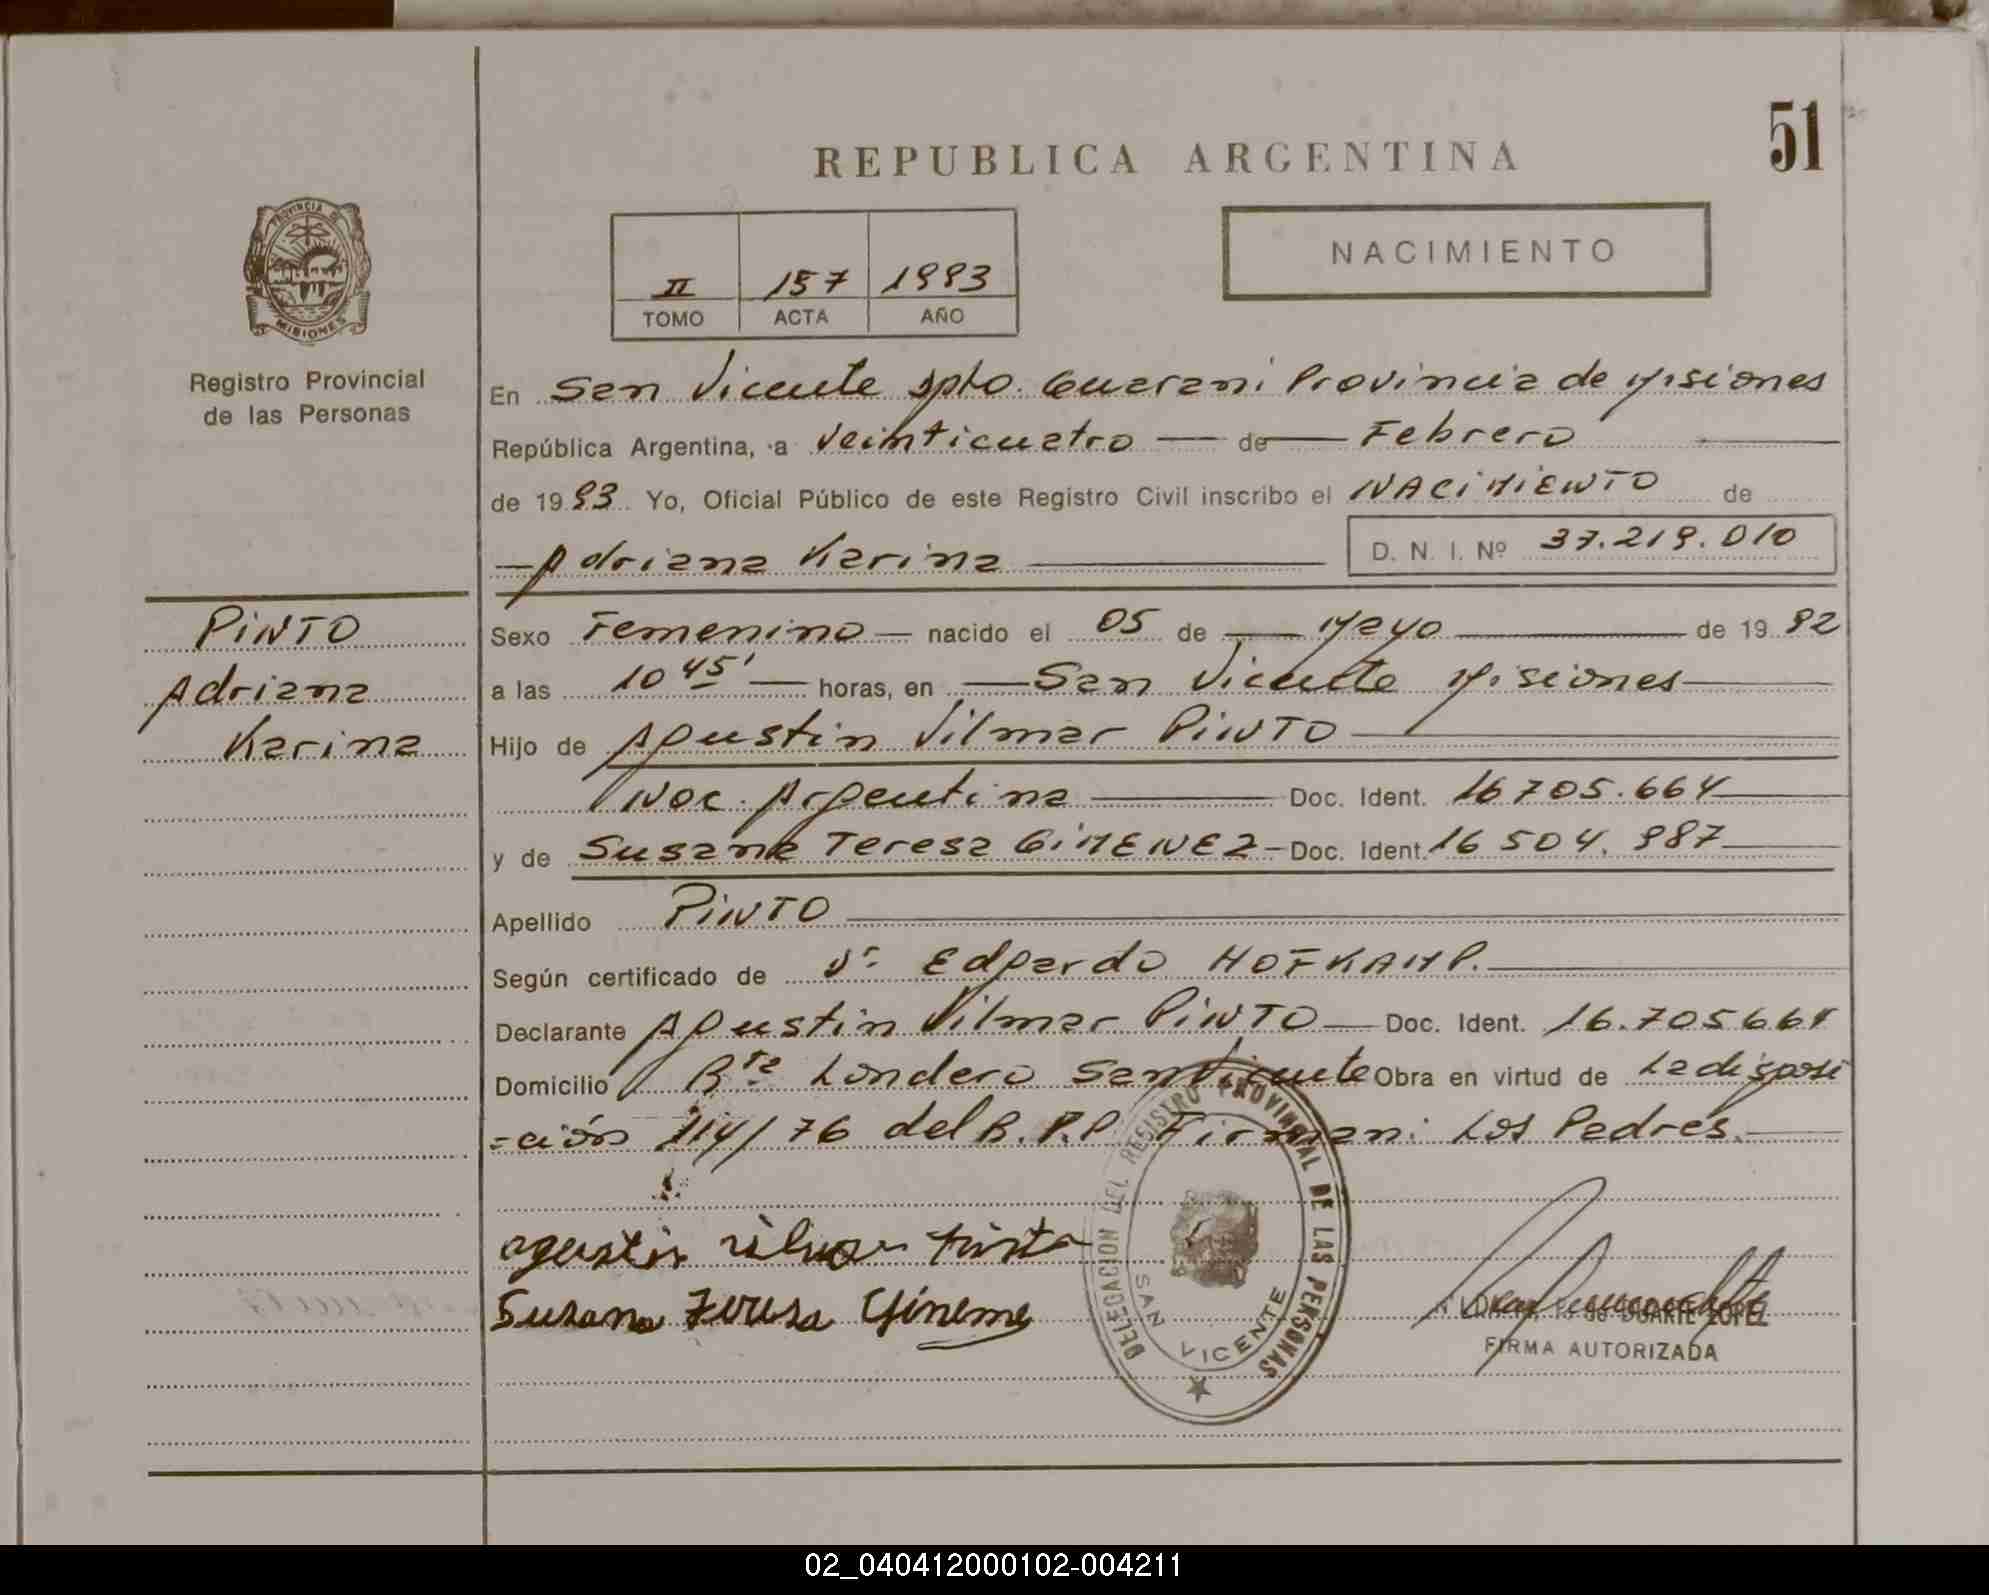 51
REPUBLICA ARGENTINA
PROVINCIA DE
MISIONES
Registro Provincial
de las Personas
NACIMIENTO
II 157 1993
TOMO ACTA AÑO
En San Vicente Dpto. Guarani Provincia de Misiones
República Argentina, a Veinticuatro de Febrero
de 1993 Yo, Oficial Público de este Registro Civil inscribo el NACIMIENTO de
Adriana Karina D. N. I. Nº 37.219.010
PINTO
Adriana
Karina
Sexo Femenino nacido el 05 de Mayo de 1992
a las 10 45' horas, en San Vicente Misiones
Hijo de Agustin Vilmar PINTO
Nac. Argentina Doc. Ident. 16705.664
y de Susana Teresa GIMENEZ - Doc. Ident. 16 504.987
Apellido PINTO
Según certificado de Dr. Edgardo HOFKAMP.
Declarante Agustin Vilmar PINTO Doc. Ident. 16.705664
Domicilio Rta Londero San Vicente Obra en virtud de La disposi
=ción 114/76 del R.P.P. Firman: Los Padres.
agustin vilmar pinto
Susana Teresa Gimene
DELEGACION DEL REGISTRO PROVINCIAL DE LAS PERSONAS
SAN VICENTE
DUARTE LOPEZ
FIRMA AUTORIZADA
02_040412000102-004211